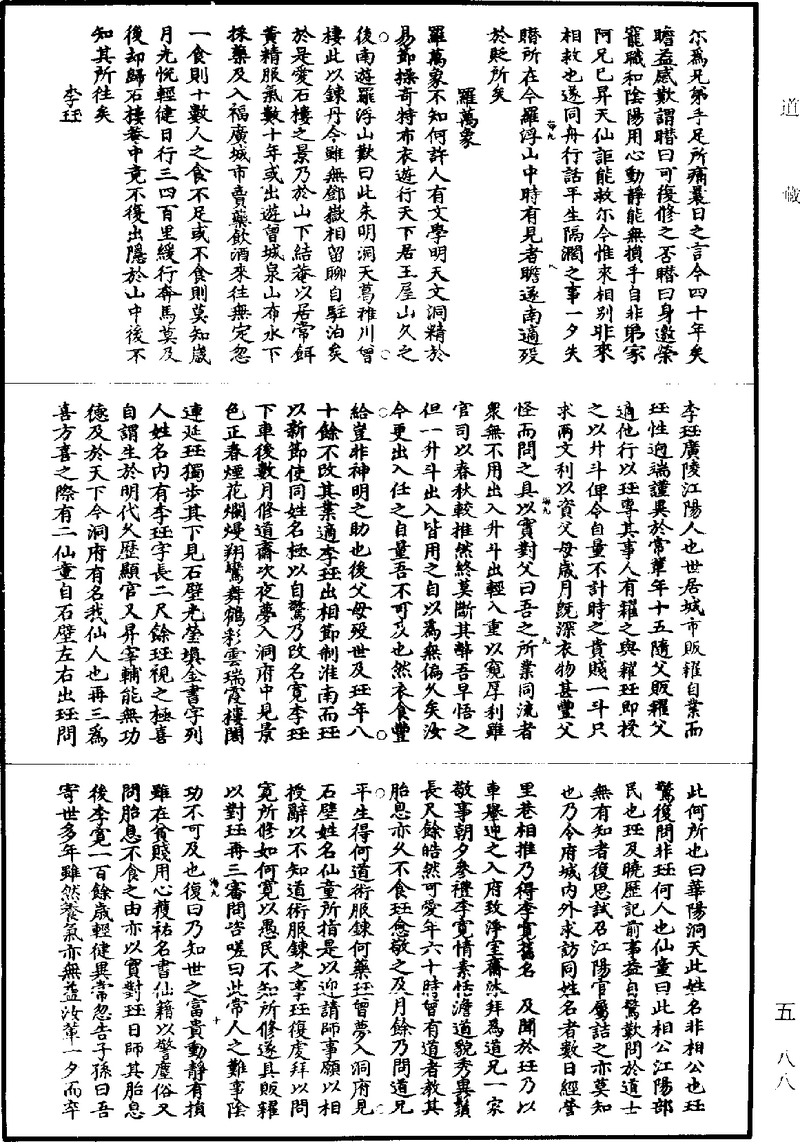 道藏
尔為兄弟手足所痛曩日之言今四十年矣
瞻益感歎謂瞻曰可復修之否瞻曰身邀榮
寵職和陰陽用心動靜能無損乎自非弟家
阿兄已昇天仙詎能救尔今惟來相別非來
相救也遂同舟行話平生隔濶之事一夕失
瞻所在今羅浮山中時有見者瞻遂南適歿
於貶所矣
羅萬象
羅萬象不知何許人有文學明天文洞精於
易節操奇特布衣遊行天下居王屋山久之
後南遊羅浮山歎曰此朱明洞天葛稚川曾
棲此以鍊丹今雖無鄧嶽相留聊自駐泊矣
於是愛石樓之景乃於山下結菴以居常餌
黃精服氣數十年或出遊曾城泉山布水下
採藥及入福廣城市賣藥飲酒來往無定忽
一食則十數人之食不足或不食則莫知歲
月光悅輕徤日行三四百里緩行奔馬莫及
後却歸石樓菴中竟不復出隱於山中後不
知其所往矣
李珏
李珏廣陵江陽人也世居城市販糴自業而
珏性迥端謹異於常輩年十五隨父販糴父
適他行以珏專其事人有糴之與糶珏即授
之以升斗俾令自量不計時之貴賤一斗只
求兩文利以資父母歲月既深衣物甚豐父
怪而問之具以實對父曰吾之所業同流者
衆無不用出入升斗出輕入重以寬厚利雖
官司以春秋較推然終莫斷其弊吾早悟之
但一升斗出入皆用之自以為無偏久矣汝
今更出入任之自量吾不可及也然衣食豐
給豈非神明之助也後父母歿世及珏年八
十餘不改其業適李珏出相節制淮南而珏
以新節使同姓名極以自驚乃改名寬李珏
下車後數月修道齋次夜夢入洞府中見景
色正春煙花爛熳翔鸞舞鶴彩雲瑞霞樓閣
連延珏獨步其下見石壁光瑩填金書字列
人姓名內有李珏字長二尺餘珏視之極喜
自謂生於明代久歷顯官又昇宰輔能無功
德及於天下今洞府有名我仙人也再三為
喜方喜之際有二仙童自石壁左右出珏問
此何所也曰華陽洞天此姓名非相公也珏
驚復問非珏何人也仙童曰此相公江陽部
民也珏及曉歷記前事益自驚歎問於道士
無有知者復思試召江陽官屬詰之亦莫知
也乃令府城內外求訪同姓名者數日經營
里巷相推乃得李寬舊名 及聞於珏乃以
車轝迎之入府致淨室齋沐拜為道兄一家
敬事朝夕參禮李寬情素恬澹道貌秀異鬚
長尺餘皓然可愛年六十時曾有道者教其
胎息亦久不食珏愈敬之及月餘乃問道兄
平生得何道術服鍊何藥珏曾夢入洞府見
石壁姓名仙童所指是以迎請師事願以相
授辭以不知道術服鍊之事珏復虔拜以問
寬所修如何寬以愚民不知所修遂具販糴
以對珏再三審問咨嗟曰此常人之難事陰
功不可及也復曰乃知世之富貴動靜有損
雖在貧賤用心蒦祐名書仙籍以警塵俗又
問胎息不食之由亦以實對珏曰師其胎息
後李寬一百餘歲輕徤異常忽告子孫曰吾
寄世多年雖然養氣亦無益汝輩一夕而卒
五 八八